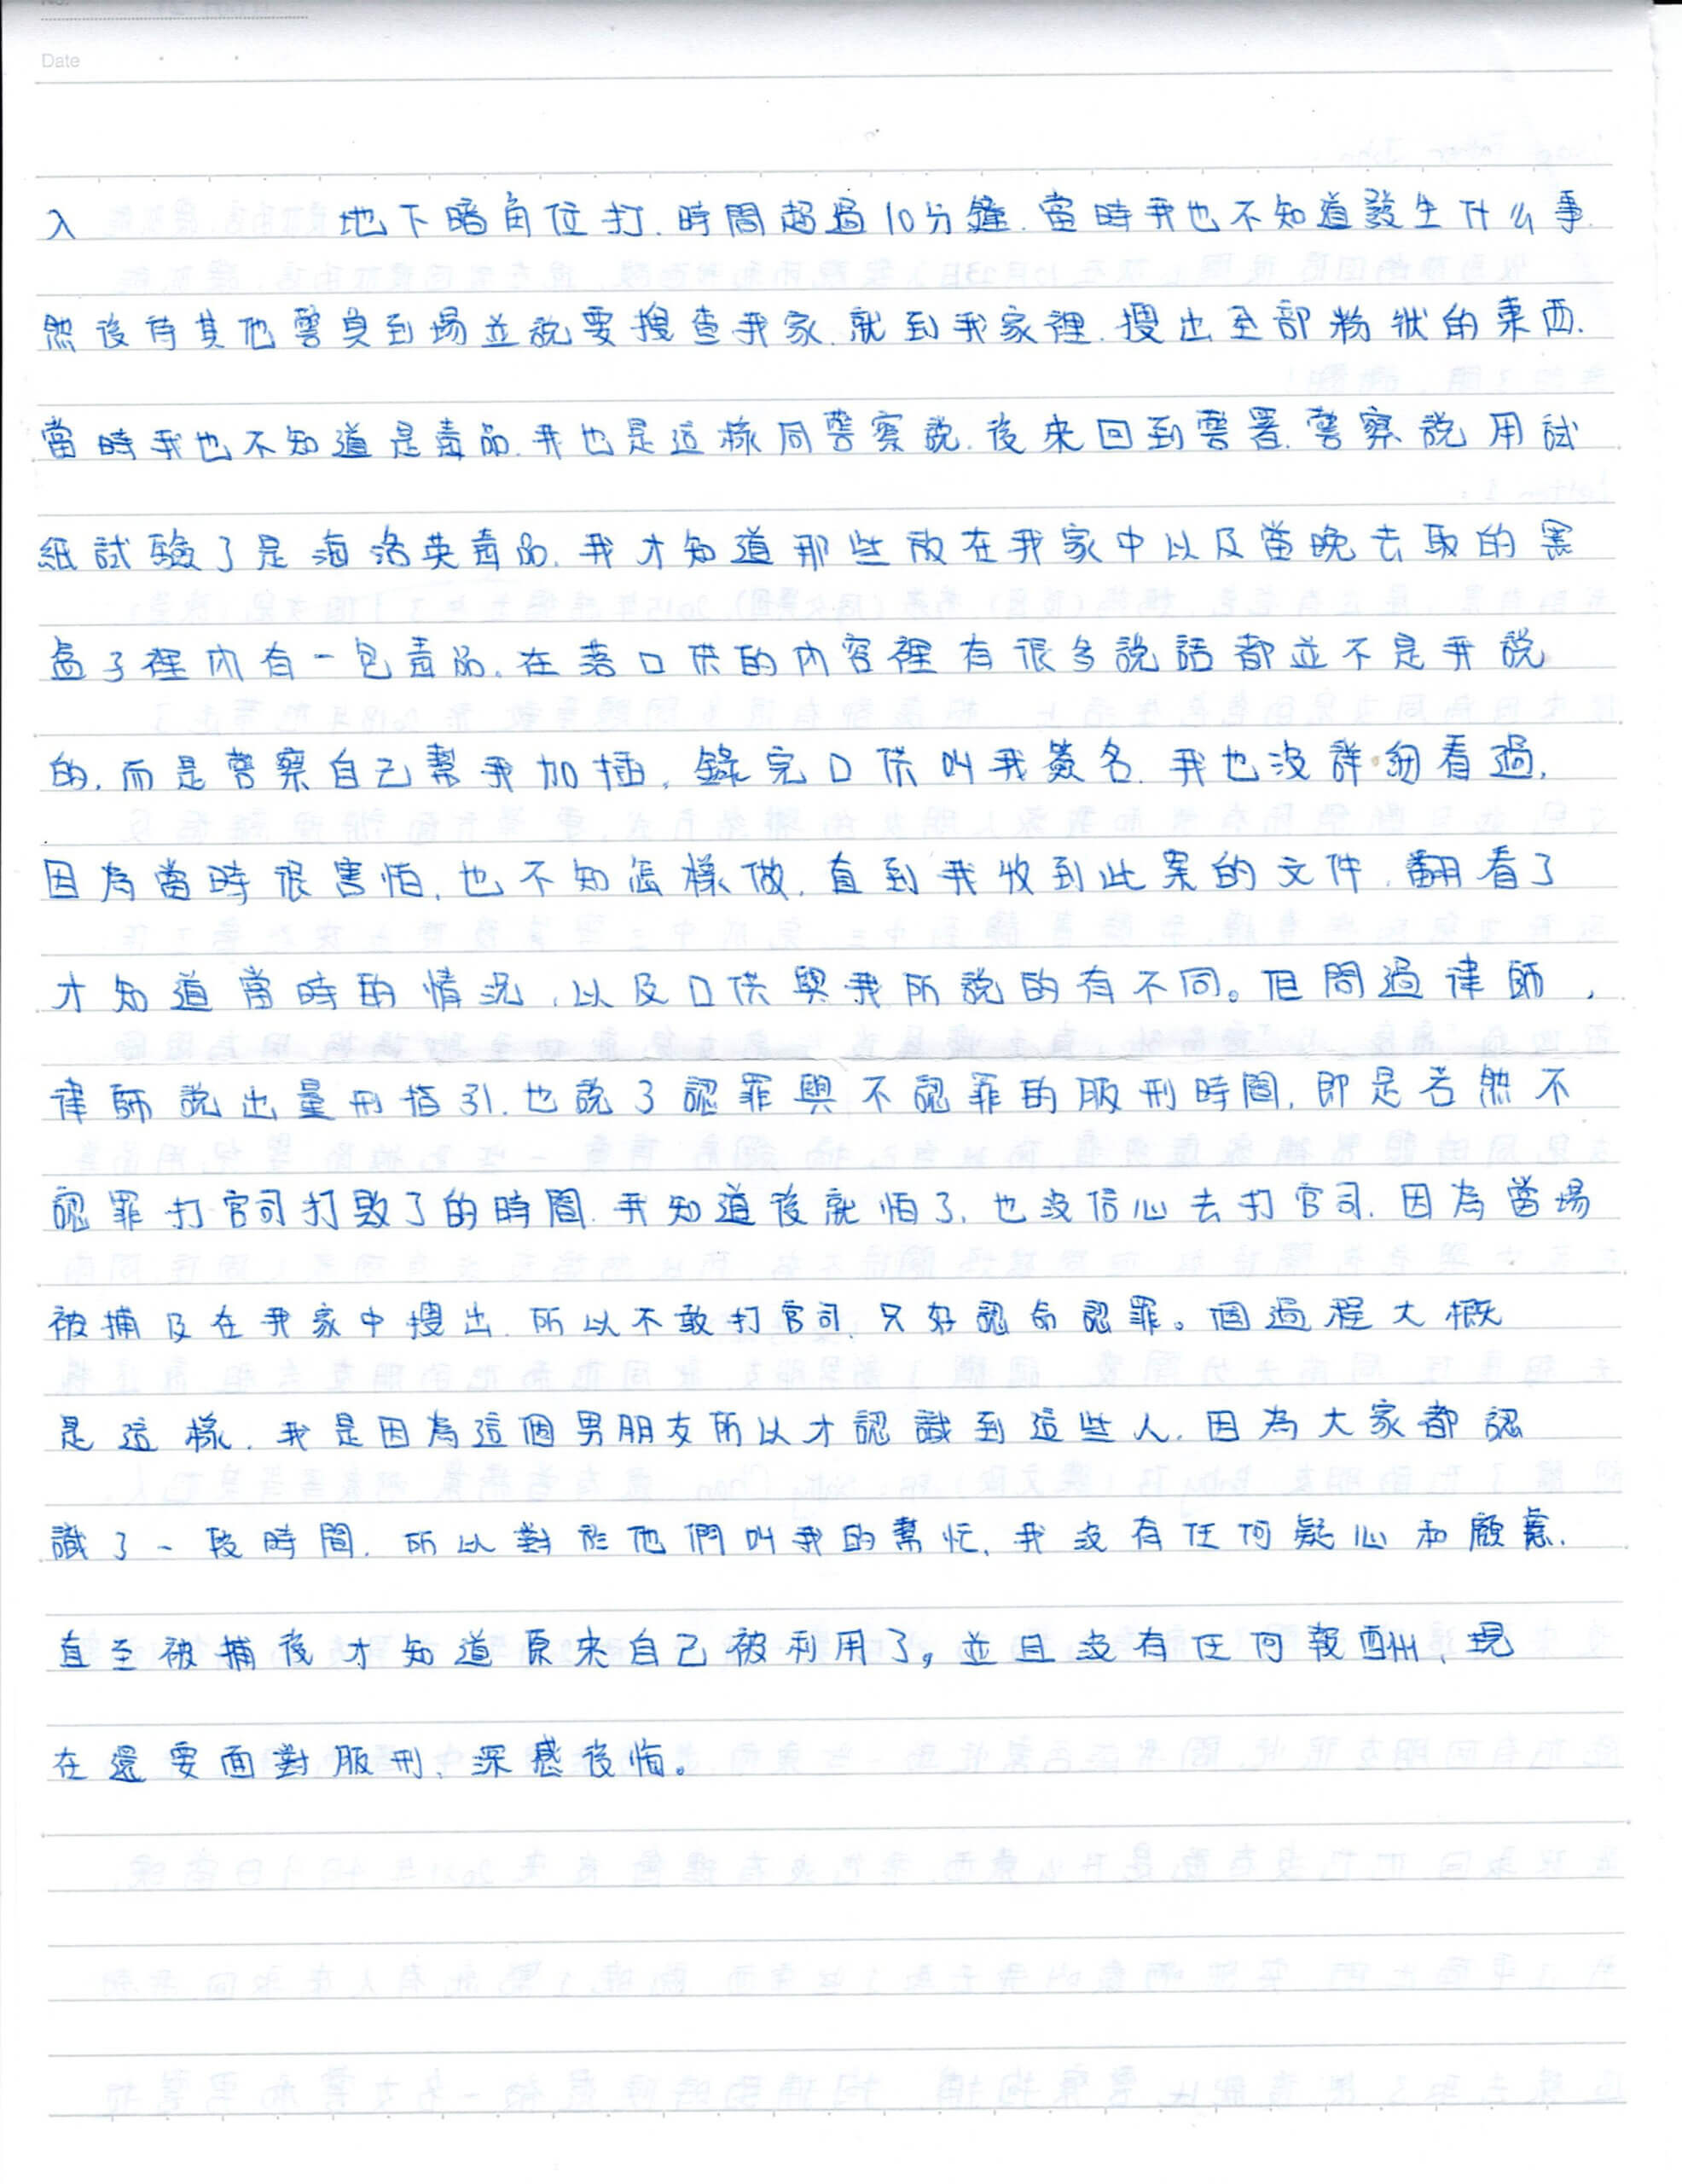 Date
入 地下暗角位打.時間超過10分鐘.當時我也不知道發生什么事.
然後待其他警員到場並說要搜查我家.就到我家裡.搜出全部粉狀的東西.
當時我也不知道是毒品.我也是這樣同警察說.後來回到警署.警察說用試
紙試驗了是海洛英毒品.我才知道那些放在我家中以及當晚去取的黑
盒子裡內有一包毒品.在落口供的內容裡有很多說話都並不是我說
的.而是警察自己幫我加插.錄完口供叫我簽名.我也沒詳細看過.
因為當時很害怕,也不知怎樣做.直到我收到此案的文件.翻看了
才知道當時的情況,以及口供與我所說的有不同。但問過律師,
律師說出量刑指引.也說了認罪與不認罪的服刑時間,即是若然不
認罪打官司打敗了的時間.我知道後就怕了,也沒信心去打官司.因為當場
被捕及在我家中搜出.所以不敢打官司.只好認命認罪。個過程大概
是這樣.我是因為這個男朋友所以才認識到這些人.因為大家都認
識了一段時間.所以對於他們叫我的幫忙,我沒有任何疑心和顧慮.
直至被捕後才知道原來自己被利用了,並且沒有任何報酬,現
在還要面對服刑、深感後悔。